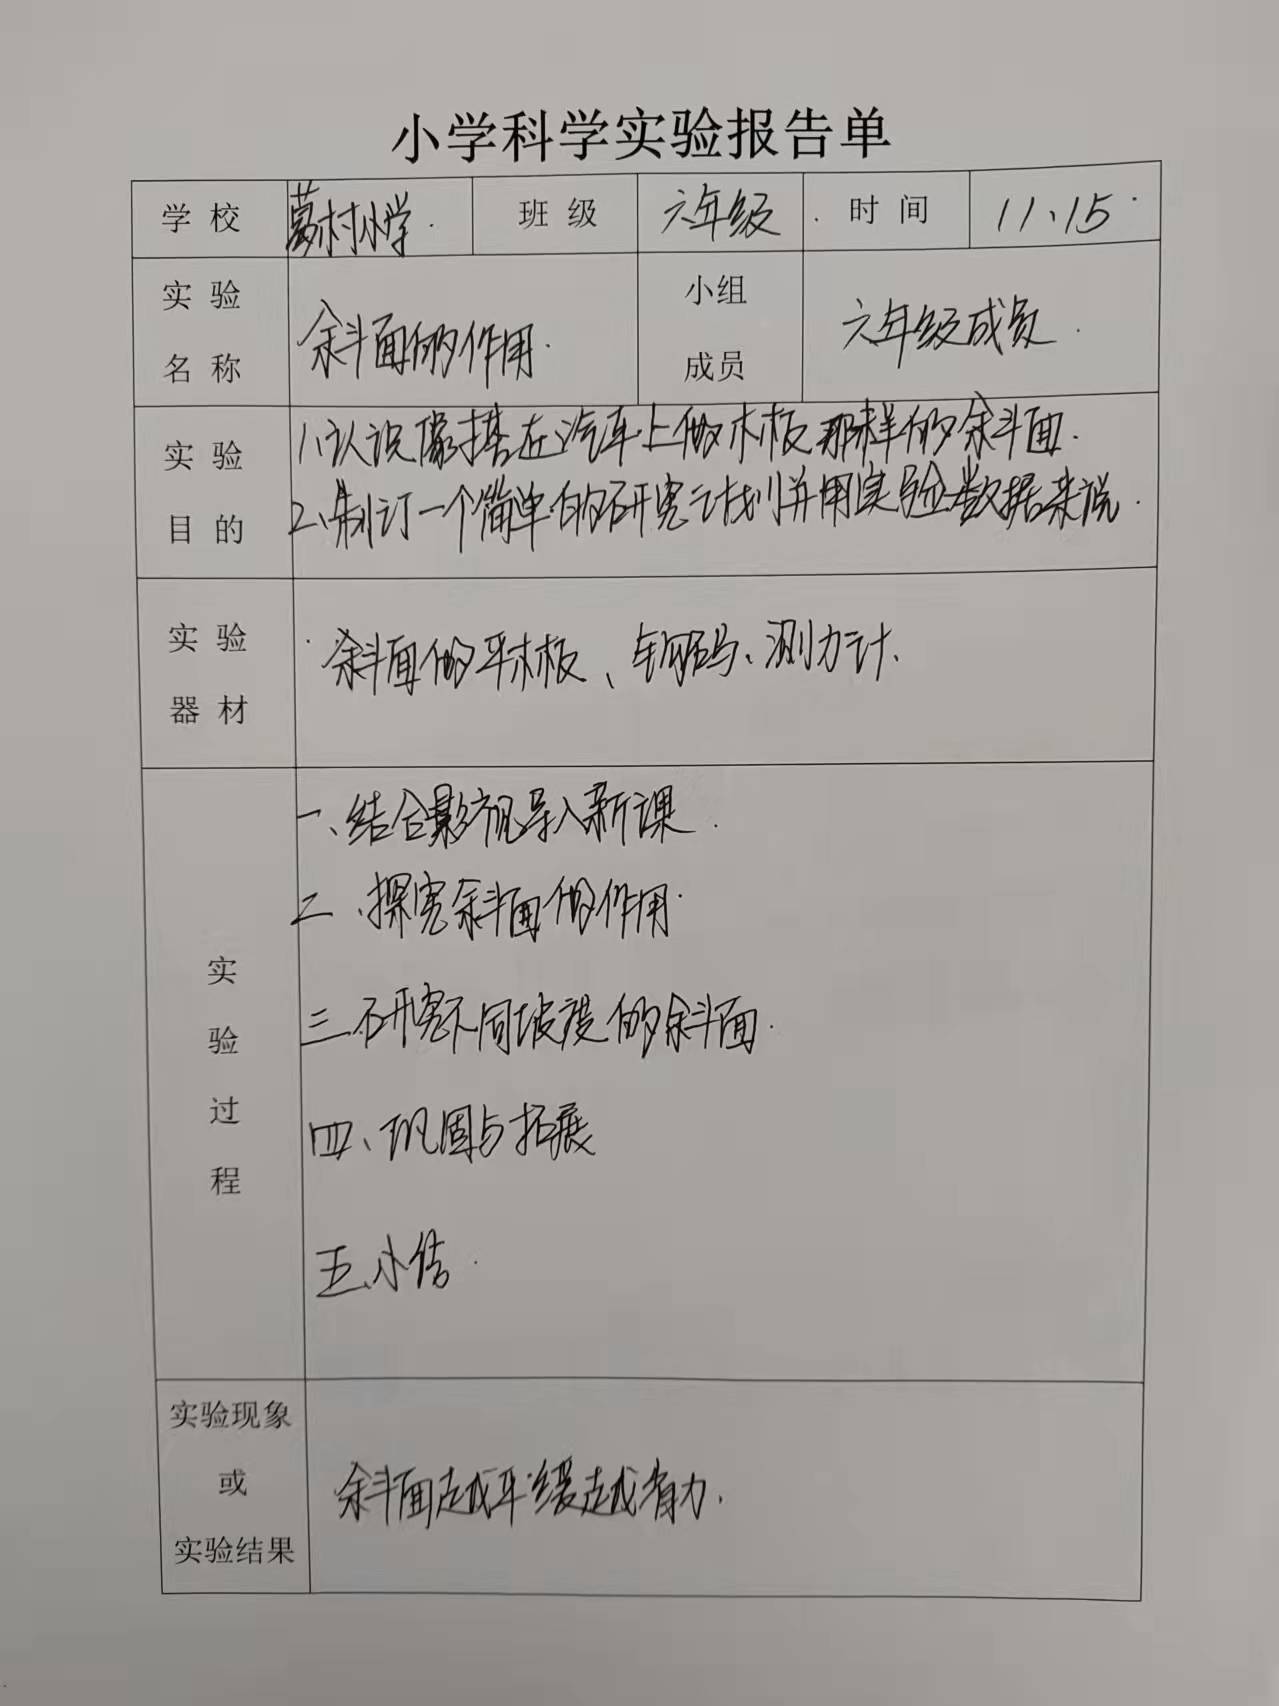 小学科学实验报告单
学校 葛村小学 班级 六年级 时间 11、15
实验名称 斜面的作用 小组成员 六年级成员
实验目的 1、认识像搭在汽车上的木板那样的斜面.
2、制订一个简单的研究计划并用实验数据来说.
实验器材 斜面的平木板、钩码、测力计、
实验过程
一、结合影视导入新课.
二、探究斜面的作用.
三、研究不同坡度的斜面.
四、巩固与拓展
五、小结.
实验现象或实验结果 斜面越平缓越省力.